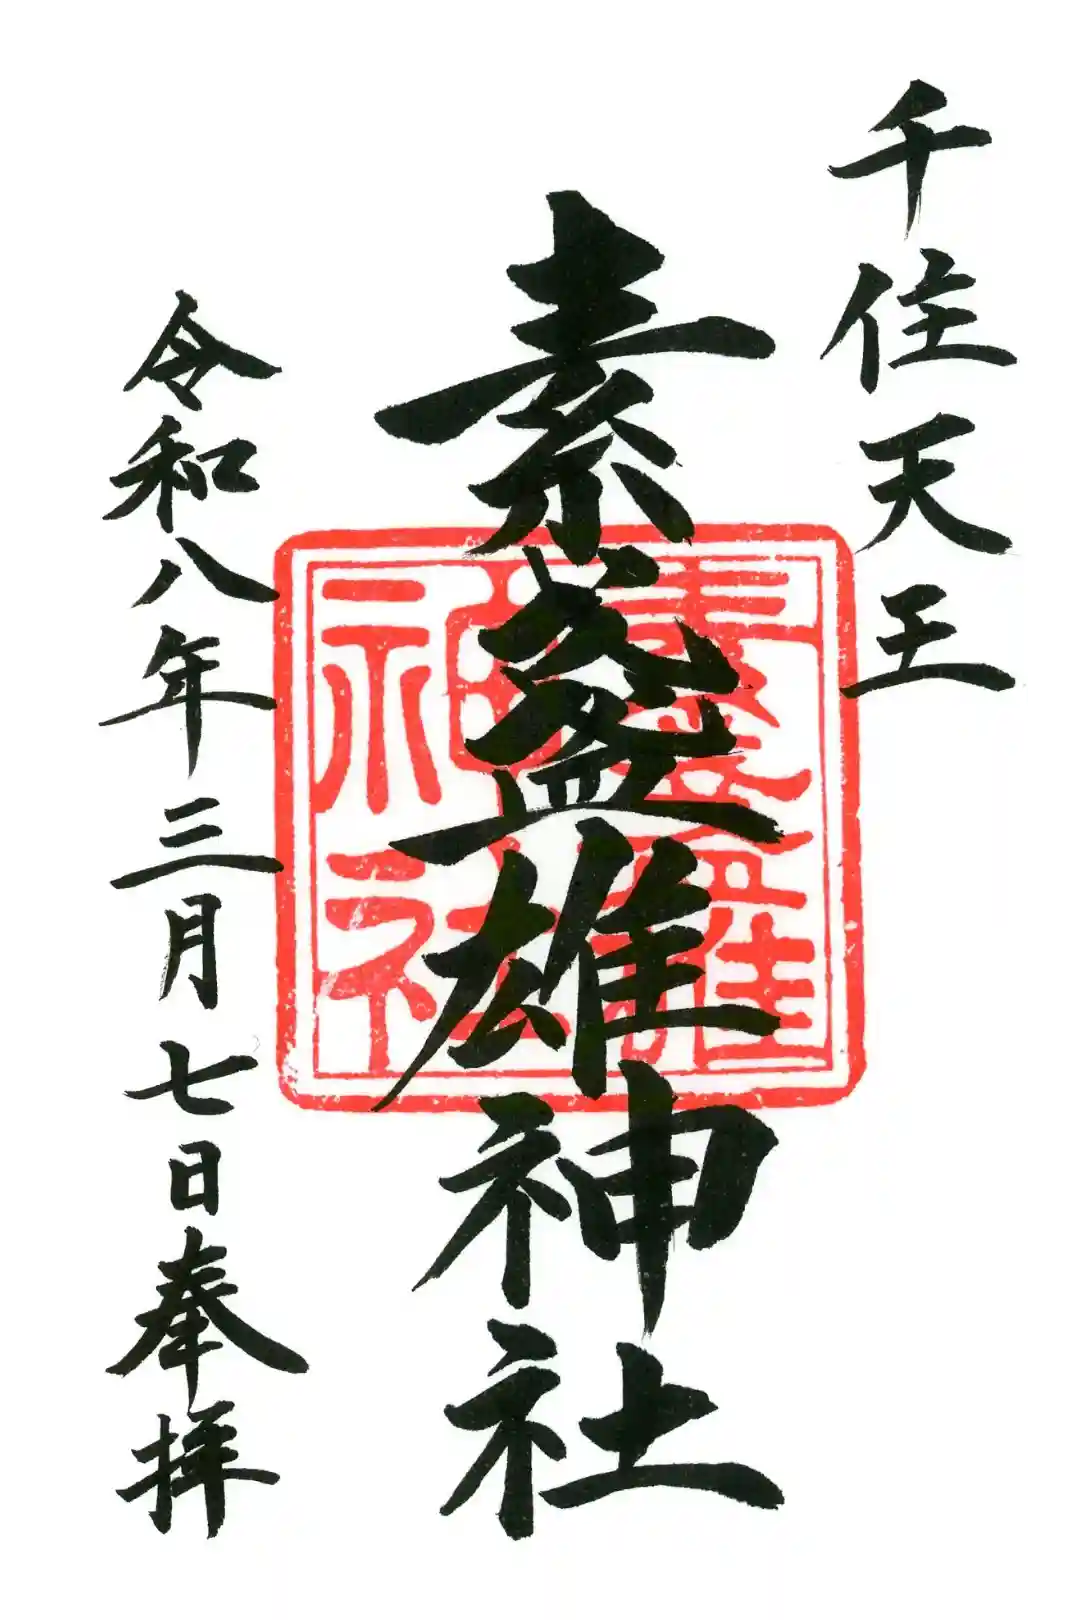 千住天王
素盞雄神社
素盞雄
神社
令和八年三月七日奉拝